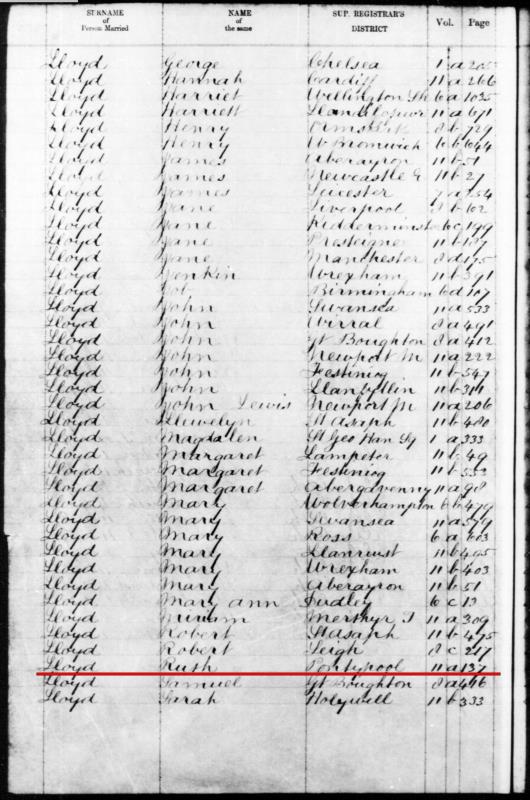 SURNAME of Person Married NAME of the same SUP. REGISTRAR'S DISTRICT Vol. Page
Lloyd George Chelsea 1 a 205
Lloyd Hannah Cardiff 11 a 266
Lloyd Harriet Wellington 6 a 1035
Lloyd Harriett 11 a 671
Lloyd Henry Ormskirk 8 b 729
Lloyd Henry W Bromwich 6 b 644
Lloyd James Aberayron 11 b 51
Lloyd James Newcastle E 11 b 27
Lloyd James Leicester 7 a
Lloyd Jane Liverpool 8 b 102
Lloyd Jane Kidderminster 6 c 199
Lloyd Jane Presteigne 11 b 107
Lloyd Jane Manchester 8 d 175
Lloyd Jenkin Wrexham 11 b 391
Lloyd Job Birmingham 6 d 107
Lloyd John Swansea 11 a 533
Lloyd John Wirral 8 a 491
Lloyd John Gt Boughton 8 a 412
Lloyd John Newport M 11 a 222
Lloyd John Festiniog 11 b 547
Lloyd John Llanfyllin 11 b 314
Lloyd John Lewis Newport M 11 a 206
Lloyd Llewelyn St Asaph 11 b 480
Lloyd Magdalen St Geo Han Sq 1 a 333
Lloyd Margaret Lampeter 11 b 49
Lloyd Margaret Festiniog 11 b 553
Lloyd Margaret Abergavenny 11 a 98
Lloyd Mary Wolverhampton 6 b 479
Lloyd Mary Swansea 11 a 579
Lloyd Mary Ross 6 a 603
Lloyd Mary Llanrwst 11 b 405
Lloyd Mary Wrexham 11 b 403
Lloyd Mary Aberayron 11 b 51
Lloyd Mary Ann Dudley 6 c 13
Lloyd Miriam Merthyr T 11 a 309
Lloyd Robert St Asaph 11 b 475
Lloyd Robert Leigh 8 c 217
Lloyd Ruth Pontypool 11 a 137
Lloyd Samuel Gt Boughton 8 a 446
Lloyd Sarah Holywell 11 b 333